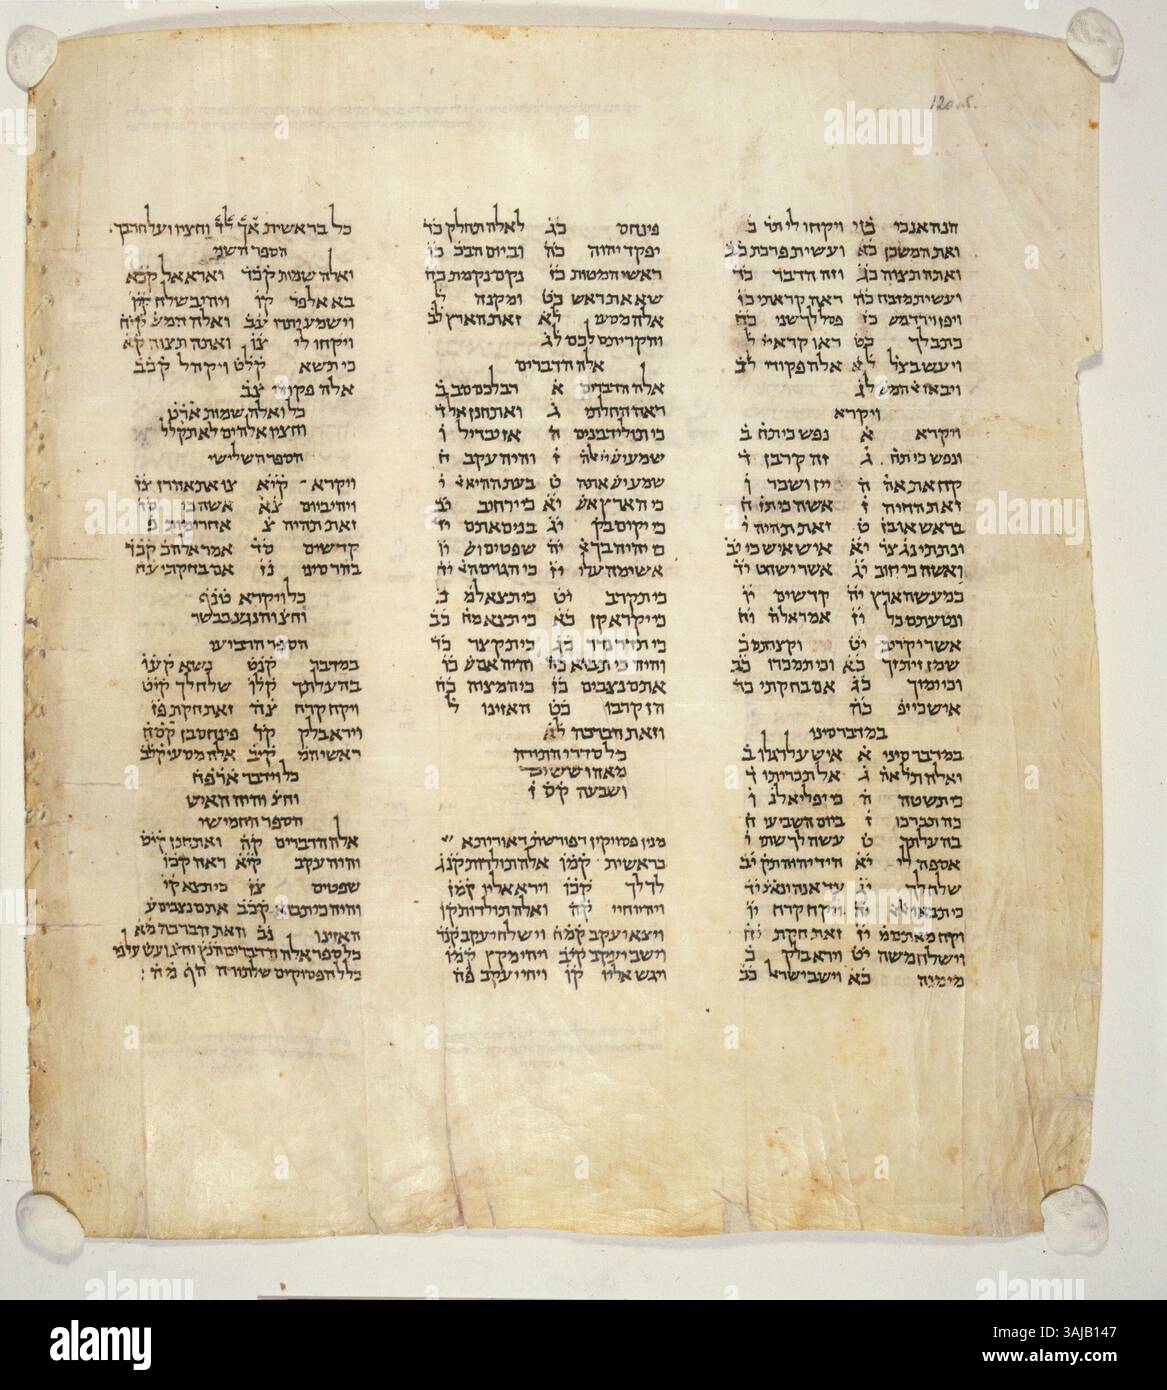 120 r.
הנה אנכי כ ויקחו לי תר כ
ואת המשכן כא ועשית פרכת כב
ואתה תצוה כג וזה הדבר כד
ועשית מזבח כה ראה קראתי כו
כז פסל לך שני כח
כתב לך כט ראו קרא ל
ויעש בצל לא אלה פקודי לב
ויבאו לג
ויקרא
ויקרא א נפש כי תח ב
ונפש כי תח ג זה קרבן ד
קח את אה ה יין ושכר ו
זאת החיה ז אשה כי תז ח
ט זאת תהיה י
ונתתי נגצר יא איש איש כי יב
ואשה כי יזוב יג אשר ישחט יד
כמעשה ארץ יה קדשים יו
ונטעתם כל יז אמר אלה יח
אשר יקריב יט וקצהתם כ
שמן זית זך כא וכי תמכרו כב
וכי ימוך כג אם בחקתי כד
איש כי יפ כה
במדבר סיני
במדבר סיני א איש על דגלו ב
ואלה תולאה ג אל תכריתו ד
כי תשטה ה כי יפליא לנ ו
כה תברכו ז ביום השביעי ח
בהעלתך ט עשה לך שתי י
אספה לי יא הידיהוה תק יב
שלח לך יג עד אנה ינאצ יד
כי תבאו יה ויקח קרח יו
וקח מאתם מ יז זאת חקת יח
וישלח משה יט וירא בלק כ
מי מנה כא וישב ישרא כב
פינחס כג לאלה תחלק כד
יפקד יהוה כה וביום הבכ כו
ראשי המטות כז נקם נקמת כח
שא את ראש כט ומקנה ל
אלה מסעי לא זאת הארץ לב
והקריתם לכם לג
אלה הדברים
אלה הדברים א רב לכם סב ב
ראה החלתי ג ואתחנן אל ד
כי תוליד בנים ה אז יבדיל ו
שמע ישראל ז והיה עקב ח
שמע ישׂ אתה ט בעת ההיא י
כי הארץ אש יא כי ירחיב יב
כי יקום בק יג בנים אתם יד
כי יהיה בך א יה שפטים וש יו
אשימה עלי יז כי הגוים הא יח
כי תקרב יט כי תצא למ כ
כי יקרא קן כא כי תצא מח כב
כי תדר נדר כג כי תקצר כד
והיה כי תבוא כה והיה אם ש כו
אתם נצבים כז כי המצוה כח
הן קרבו כט האזינו ל
וזאת הברכה לא
כל סדרי התורה
מאה וששים
ושבעה קס ז
מנין פסוקין דפורשת דאוריתא
בראשית קמו אלה תולדות קנג
לך לך קכו וירא אליו קמז
ויהיו חיי קה ואלה תולדות קו
ויצא יעקב קמח וישלח יעקב קנד
וישב יעקב קיב ויהי מקץ קמו
ויגש אליו קו ויחי יעקב פה
כל בראשית אך לד וחציו ועל חרבך
הספר השני
ואלה שמות קכד וארא אל קכא
בא אל פר קו ויהי בשלח קיו
וישמע יתרו עב ואלה המש קיח
ויקחו לי צו ואתה תצוה קא
כי תשא קלט ויקהל קכב
אלה פקודי צב
כל ואלה שמות ארט
וחציו אלהים לא תקלל
הספר השלישי
ויקרא קיא צו את אהרן צז
ויהי ביום צא אשה כי סז
זאת תהיה צ אחרי מות פ
קדשים סד אמר אל הכ קכד
בהר סיני נז אם בחקתי עח
כל ויקרא
וחציו והנגע בבשר
הספר הרביעי
במדבר קנט נשא קעו
בהעלתך קלו שלח לך קיט
ויקח קרח צה זאת חקת פז
וירא בלק קד פינחס בן קסח
ראשי המ קיב אלה מסעי קלב
כל וידבר ארפח
וחצ והיה האיש
הספר החמישי
אלה הדברים קה ואתחנן קיט
והיה עקב קיא ראה קכו
שפטים צז כי תצא קי
והיה כי תבוא קכב אתם נצבים ע
האזינו נב וזאת הברכה מא
כל ספר אלה הדברים הנץ וחצ ועש על פי
כלל הפסוקים שלתורה הף מה :
alamy
Image ID: 3AJB147
www.alamy.com